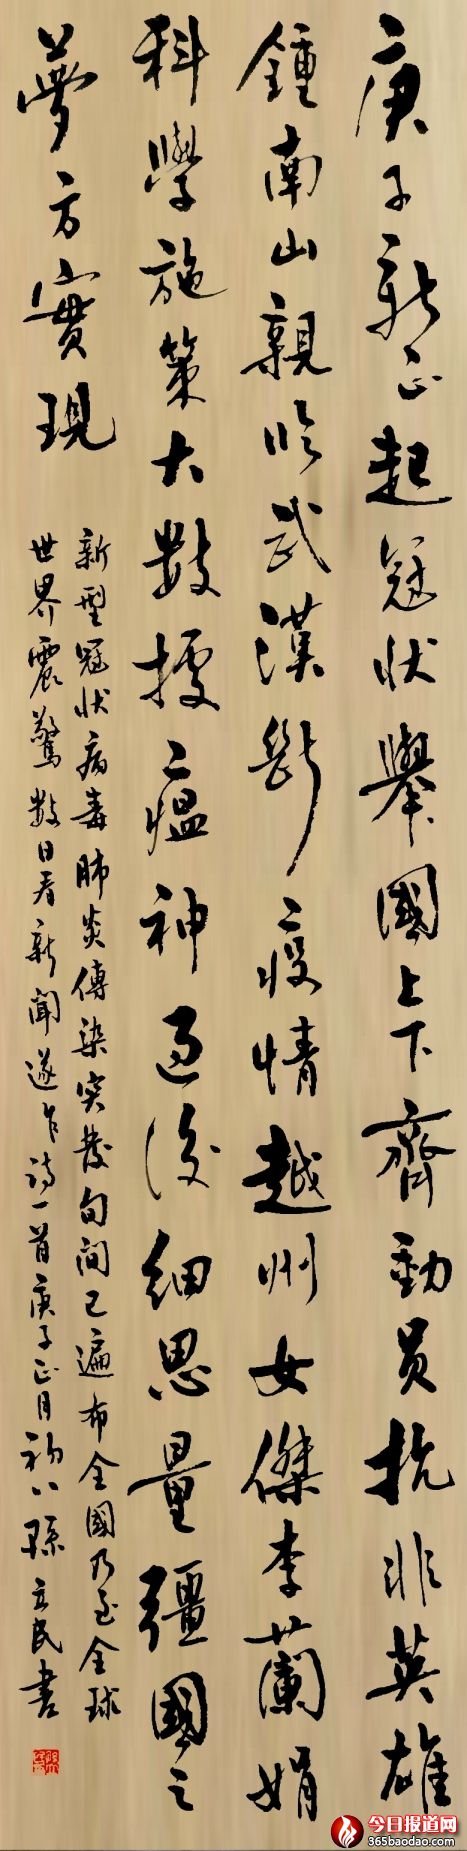 庚子新正起冠状舉國上下齊動員抗非英雄
鍾南山親临武漢斷疫情越州女傑李蘭娟
科學施策大數據瘟神過後細思量疆國之
夢方實現
新型冠状病毒肺炎傳染突發旬間已遍布全國乃至全球
世界震驚數日看新聞遂作詩一首庚子正月初八孫立民書
今日报道网
365baodao.com